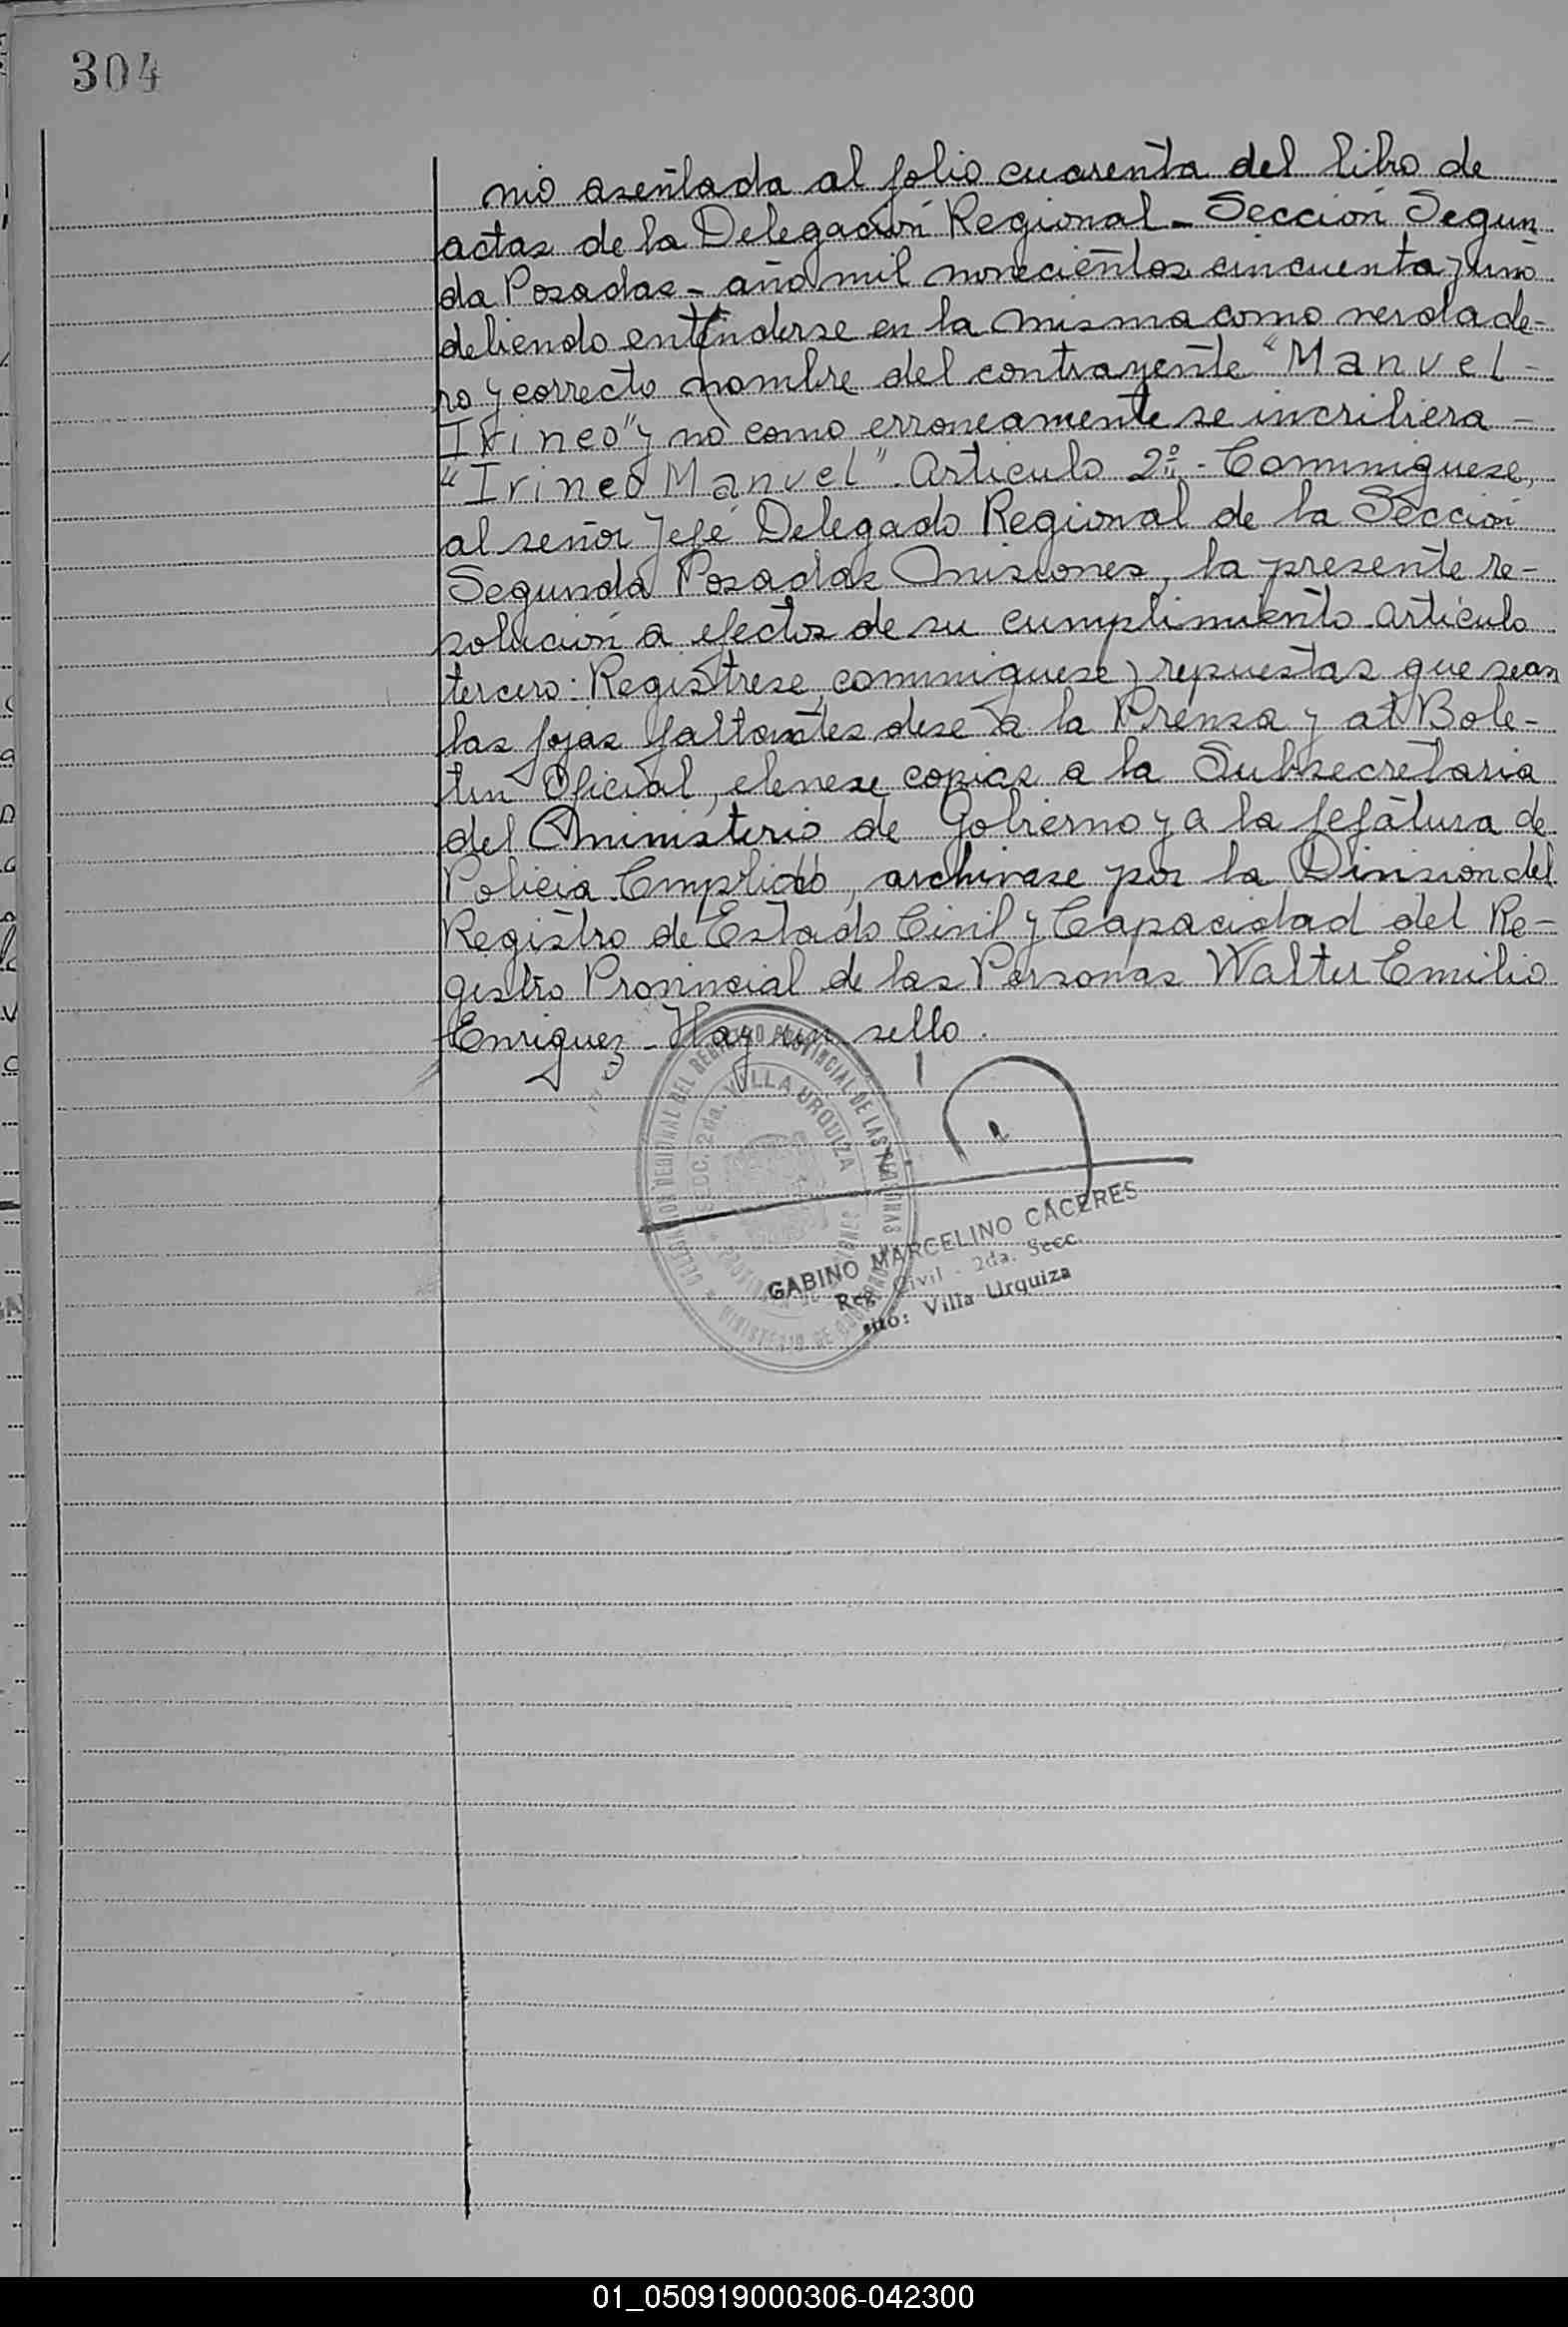 304
nio asentada al folio cuarenta del libro de
actas de la Delegación Regional - Sección Segun
da Posadas - año mil novecientos cincuenta y uno
debiendo entenderse en la misma como verdade-
ro y correcto nombre del contrayente "Manuel -
Irineo" y no como erroneamente se incribiera -
"Irineo Manuel". Articulo 2º - Comuniquese,
al señor Jefe Delegado Regional de la Sección
Segunda Posadas Misiones, la presente re-
solución a efectos de su cumplimiento. Articulo
tercero: Registrese, comuniquese y repuestas que sean
las fojas faltantes dese a la Prensa y al Bole-
tin Oficial, elevese copias a la Subsecretaria
del Ministerio de Gobierno y a la Jefatura de
Policia. Cumplido, archivese por la Division del
Registro de Estado Civil y Capacidad del Re-
gistro Provincial de las Personas Walter Emilio
Enriquez - Hay un sello.
DELEGACION REGIONAL DEL REGISTRO PROVINCIAL DE LAS PERSONAS
SECC. 2da. VILLA URQUIZA
PROVINCIA DE MISIONES
MINISTERIO DE GOBIERNO
GABINO MARCELINO CACERES
Reg. Civil - 2da. Secc.
sito: Villa Urquiza
01_050919000306-042300